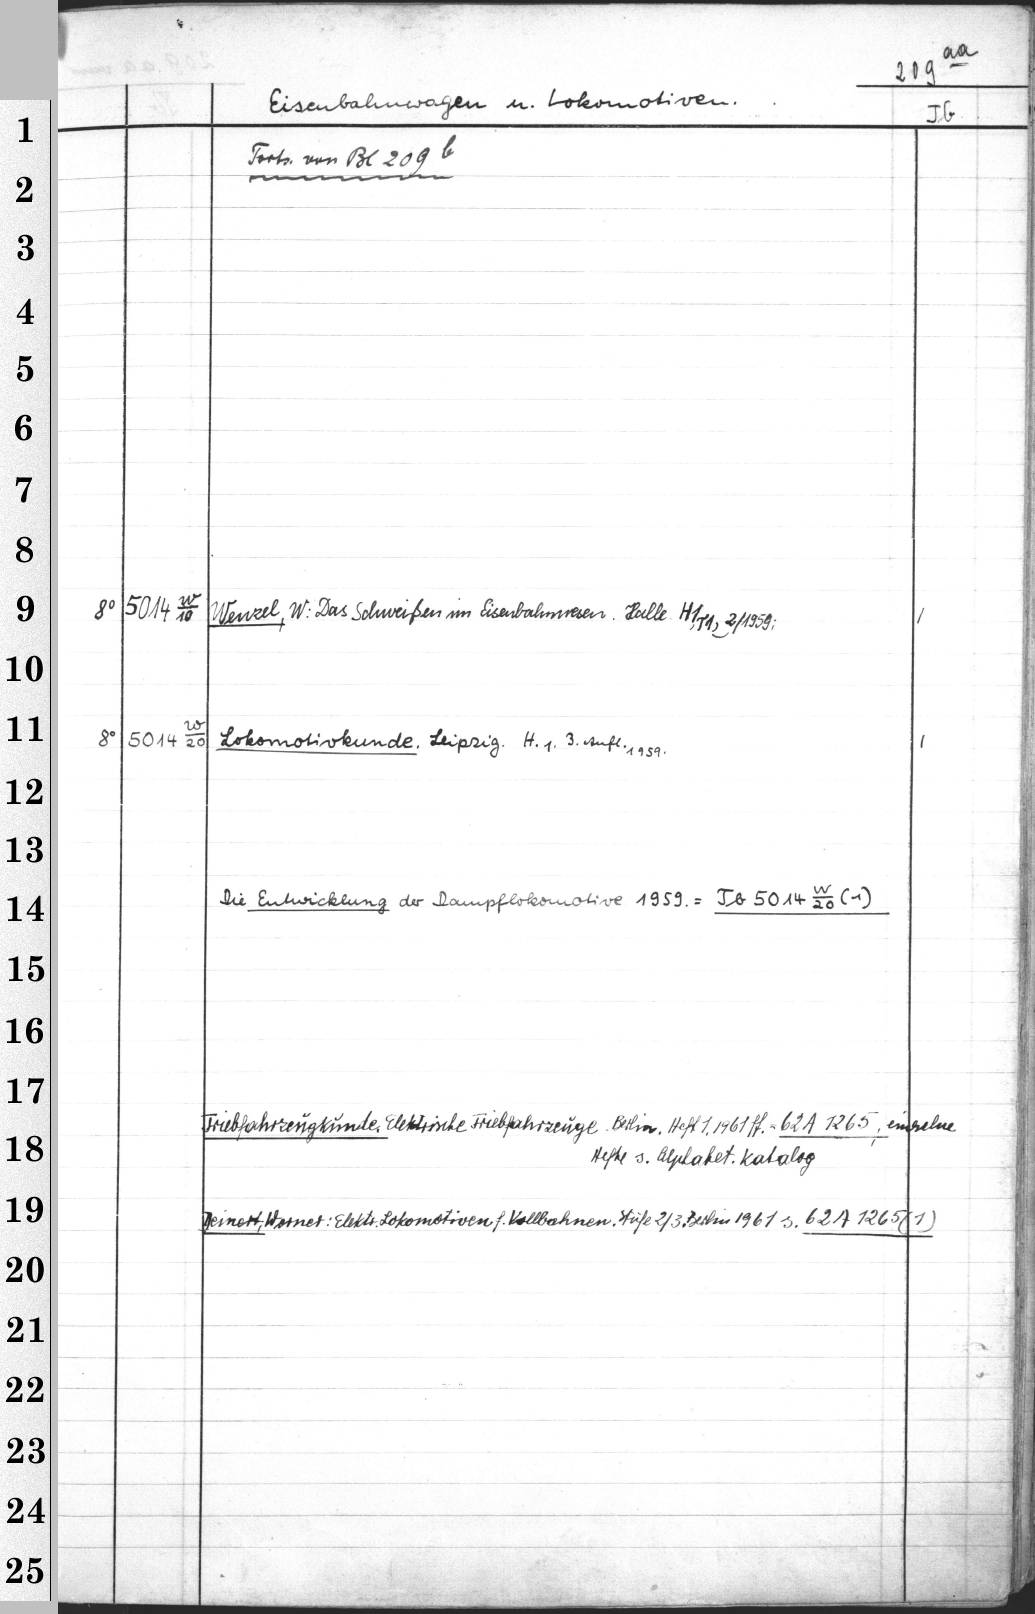 209 aa
Eisenbahnwagen u. Lokomotiven.
Forts. von Bl 209 b
8° 5014 W/10 Wenzel, W: Das Schweißen im Eisenbahnwesen. Halle H1, T1, 2/1959; 1
8° 5014 W/20 Lokomotivkunde. Leipzig. H. 1. 3. Aufl. 1959. 1
Die Entwicklung der Dampflokomotive 1959. = 5014 W/20 (1)
Triebfahrzeugkunde. Elektrische Triebfahrzeuge. Berlin. Heft 1. 1961 ff. = 62A 1265, einzelne
Hefte s. Alphabet. Katalog
Deinert, Werner: Elektr. Lokomotiven f. Vollbahnen. Stufe 2/3. Berlin 1961 s. 62A 1265 (1)
1
2
3
4
5
6
7
8
9
10
11
12
13
14
15
16
17
18
19
20
21
22
23
24
25